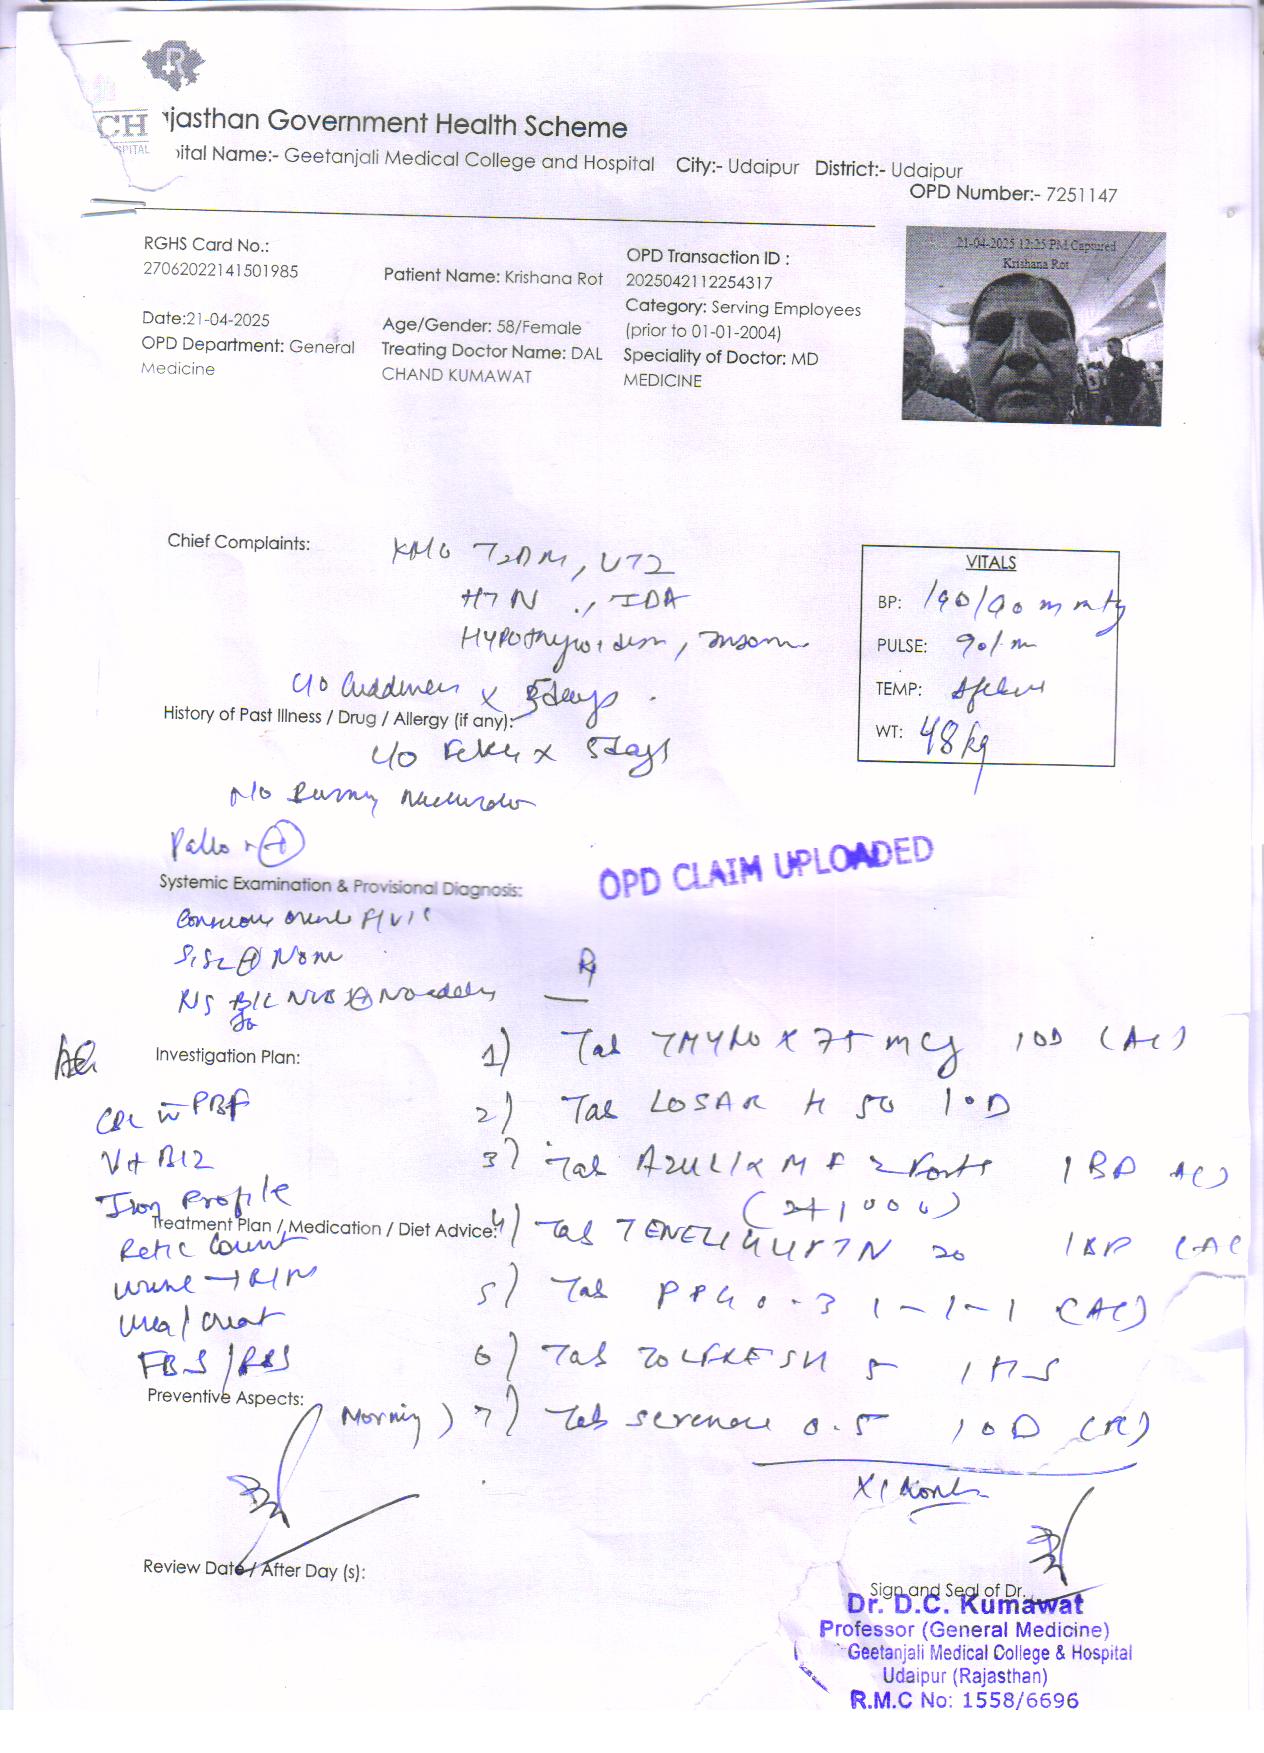 CH
SPITAL
jasthan Government Health Scheme
ital Name:- Geetanjali Medical College and Hospital City:- Udaipur District:- Udaipur
OPD Number:- 7251147
RGHS Card No.:
27062022141501985
Patient Name: Krishana Rot
OPD Transaction ID :
2025042112254317
Date:21-04-2025
OPD Department: General
Medicine
Age/Gender: 58/Female
Treating Doctor Name: DAL
CHAND KUMAWAT
Category: Serving Employees
(prior to 01-01-2004)
Speciality of Doctor: MD
MEDICINE
21-04-2025 12:25 PM Captured
Krishana Rot
Chief Complaints:
T2DM,
HTN , IDA
Hypothyroidism,
c/o x 5days
VITALS
BP: 190/90 mmHg
PULSE: 90/m
TEMP:
WT: 48kg
History of Past Illness / Drug / Allergy (if any):
c/o x 5days
Pallor +
OPD CLAIM UPLOADED
Systemic Examination & Provisional Diagnosis:
S1S2
Rx
Investigation Plan:
CBC PBF
Vit B12
Iron Profile
Retic Count
Urine R/M
Urea/Creat
FBS/RBS
1) Tab THYROX 75 mcg 1OD (AC)
2) Tab LOSAR H 50 1OD
3) Tab AZULIX MF 2 Forte 1 BD AC)
(2+1000)
Treatment Plan / Medication / Diet Advice:
4) Tab 20 (AC
5) Tab PPG 0.3 1-1-1 (AC)
6) Tab ZOLFRESH 5 1 HS
Preventive Aspects:
(Morning) 7) Tab serenace 0.5 1OD
x 1 Month
Review Date / After Day (s):
Sign and Seal of Dr.
Dr. D.C. Kumawat
Professor (General Medicine)
Geetanjali Medical College & Hospital
Udaipur (Rajasthan)
R.M.C No: 1558/6696